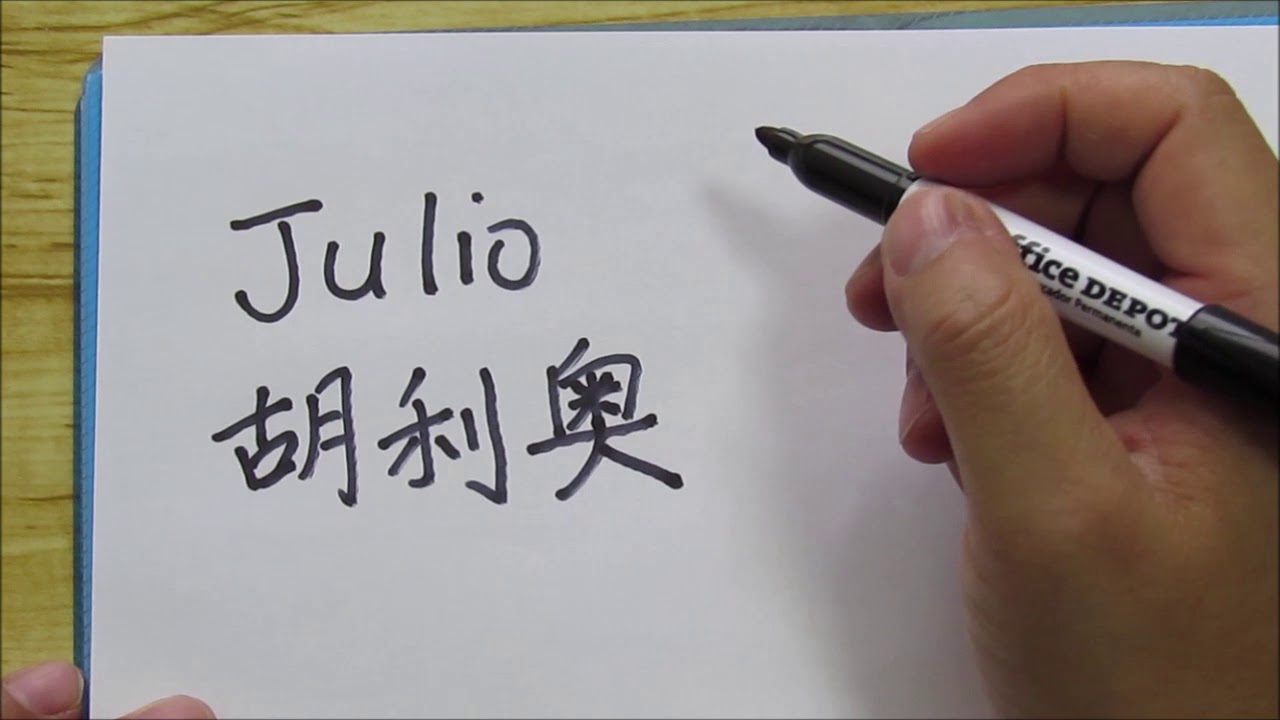 Julio
胡利奥
ffice DEPOT
cador Permanente